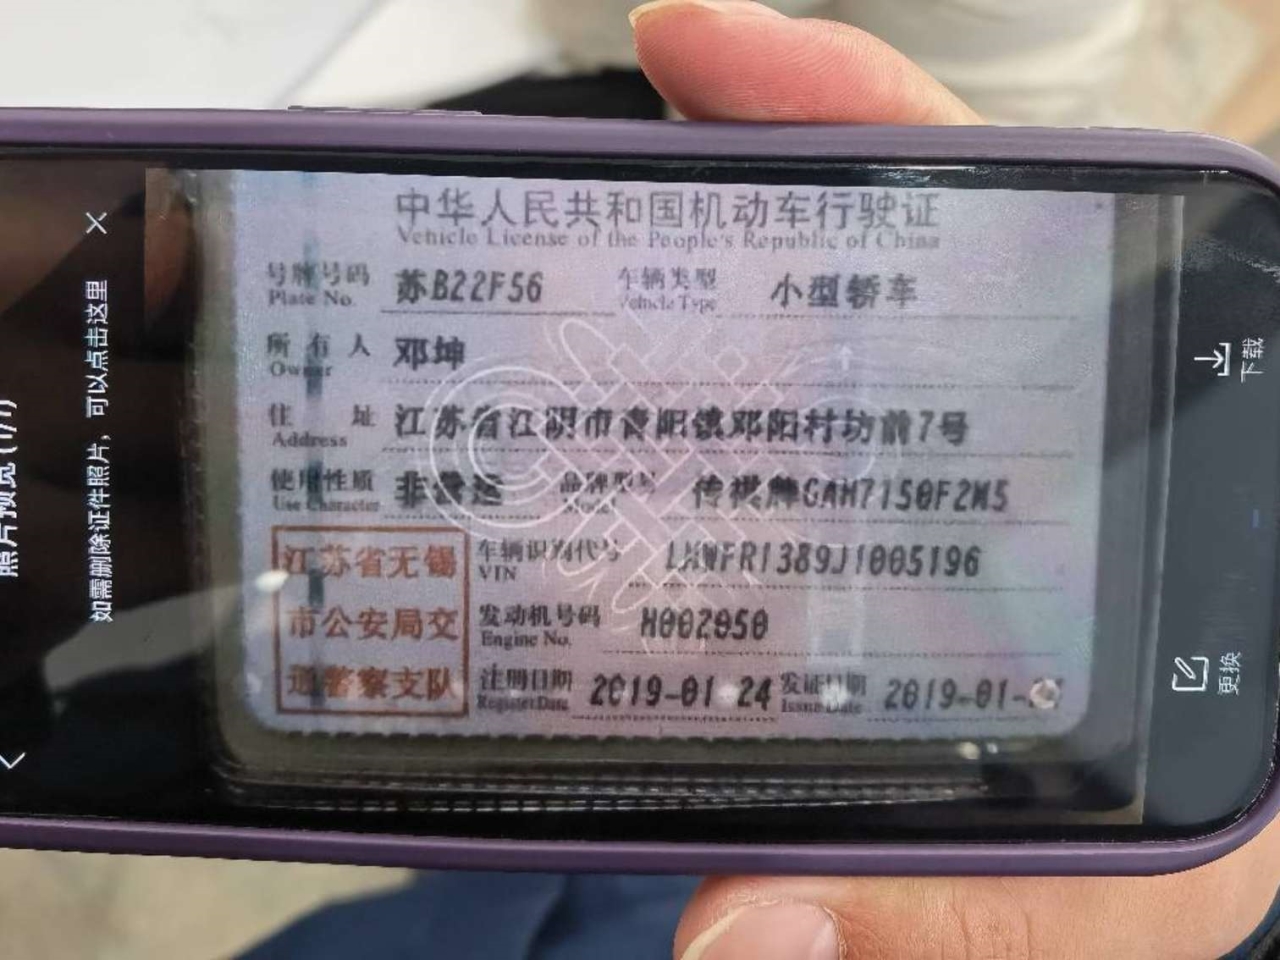 中华人民共和国机动车行驶证
Vehicle License of the People's Republic of China
号牌号码 苏B22F56 车辆类型 小型轿车
Plate No. Vehicle Type
所有人 邓坤
Owner
住址 江苏省江阴市青阳镇邓阳村坊前7号
Address
使用性质 非营运 品牌型号 传祺牌GAM7150F2M5
Use Character Model
江苏省无锡
市公安局交
通警察支队
车辆识别代号
VIN
发动机号码
Engine No.
注册日期 2019-01-24 发证日期 2019-01-
Register Date Issue Date
照片预览 (1/1)
如需删除证件照片，可以点击这里
下载
更换